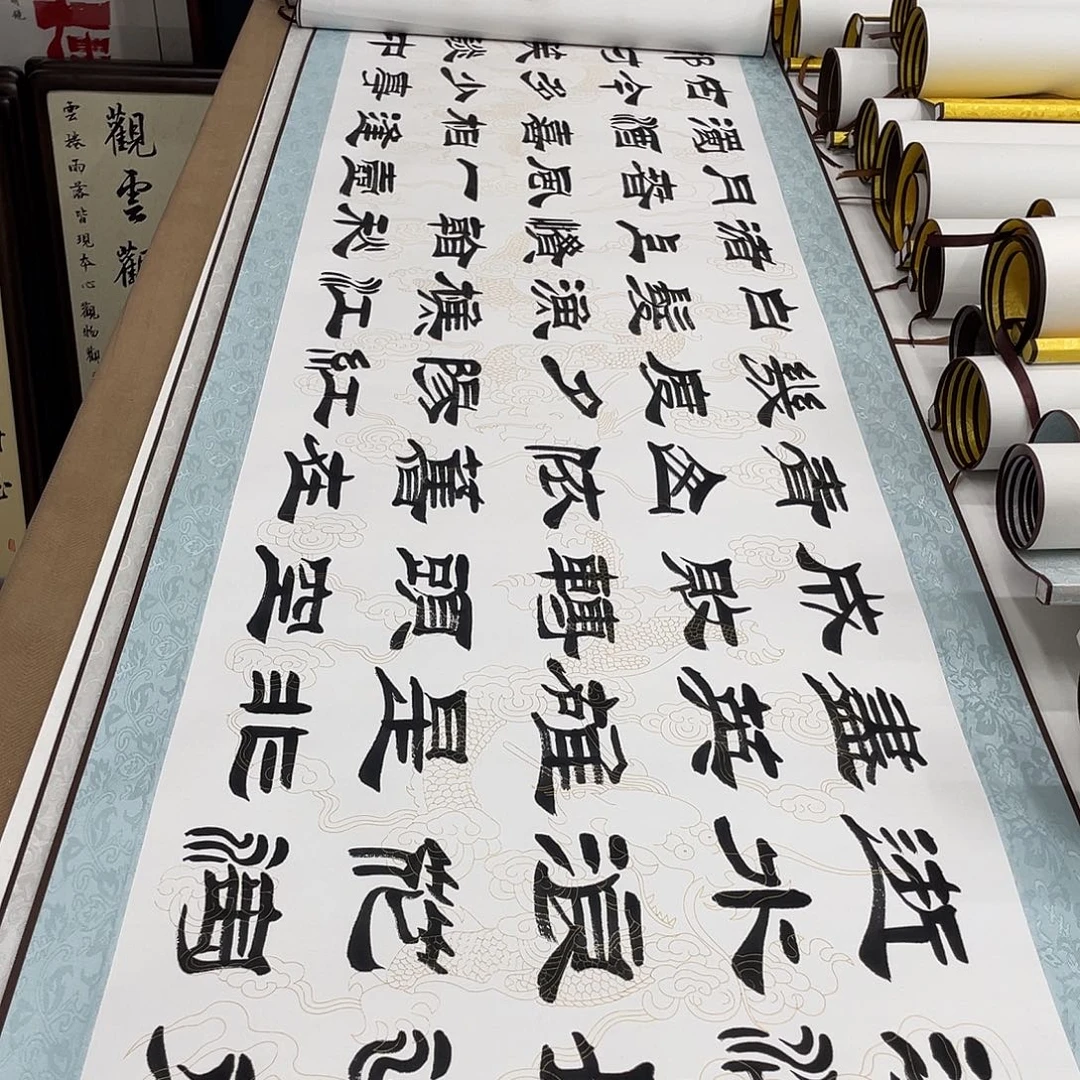 逝水浪花淘
盡英雄是非
成敗轉頭空
青山依舊在
幾度夕陽紅
白髮漁樵江
渚上慣看秋
月春風一壺
濁酒喜相逢
古今多少事
都付笑談中
觀雲觀
雲捲雨落皆現本心觀物觀